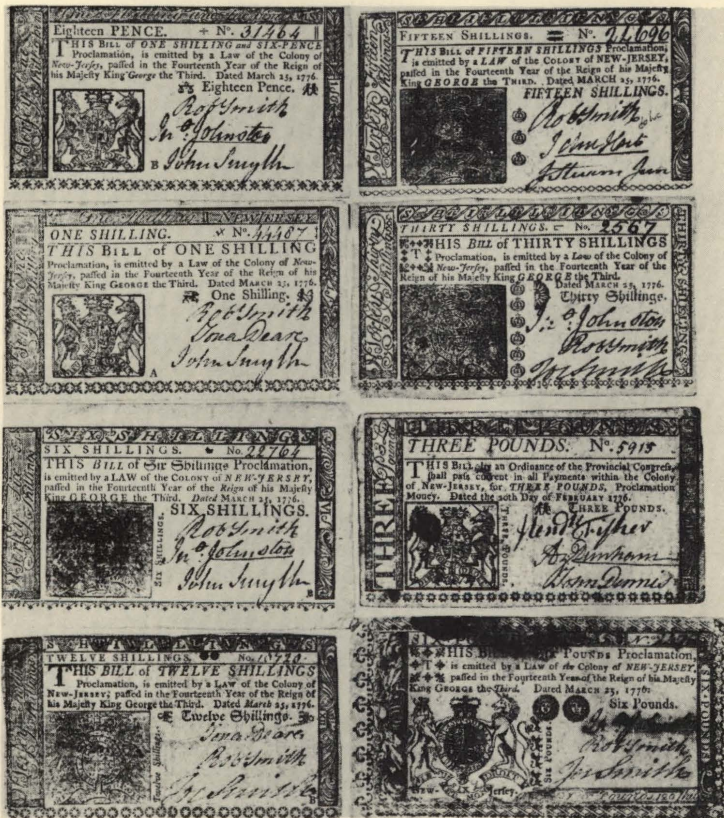 Eighteen PENCE. No. 31464
THIS Bill of ONE SHILLING and SIX-PENCE
Proclamation, is emitted by a Law of the Colony of
New-Jersey, passed in the Fourteenth Year of the Reign of
his Majesty King George the Third. Dated March 25, 1776.
Eighteen Pence.
Rob Smith
Jno. Johnston
B John Smyth
ONE SHILLING. No. 44487
THIS BILL of ONE SHILLING
Proclamation, is emitted by a Law of the Colony of New-
Jersey, passed in the Fourteenth Year of the Reign of his
Majesty King GEORGE the Third. Dated MARCH 25, 1776.
One Shilling.
Rob Smith
Jona Deare
John Smyth
A
SIX SHILLINGS
SIX SHILLINGS. No. 22764
THIS BILL of Six Shillings Proclamation,
is emitted by a LAW of the COLONY of NEW-JERSEY,
passed in the Fourteenth Year of the Reign of his Majesty
King GEORGE the Third. Dated MARCH 25, 1776.
SIX SHILLINGS.
SIX SHILLINGS.
Rob Smith
Jno. Johnston
John Smyth
B
TWELVE SHILLINGS. No. 10720
THIS BILL of TWELVE SHILLINGS
Proclamation, is emitted by a LAW of the Colony of
NEW-JERSEY; passed in the Fourteenth Year of the Reign of
his Majesty King George the Third. Dated March 25, 1776.
Twelve Shillings.
Twelve Shillings.
Jona Deare
Rob Smith
Jos Smith
B
FIFTEEN SHILLINGS. No. 24696
THIS BILL of FIFTEEN SHILLINGS Proclamation,
is emitted by a LAW of the COLONY of NEW-JERSEY,
passed in the Fourteenth Year of the Reign of his Majesty
King GEORGE the THIRD. Dated MARCH 25, 1776.
FIFTEEN SHILLINGS.
Rob Smith
THIRTY SHILLINGS. No. 2567
THIS Bill of THIRTY SHILLINGS
Proclamation, is emitted by a Law of the Colony of
New-Jersey, passed in the Fourteenth Year of the
Reign of his Majesty King GEORGE the Third.
Dated MARCH 25, 1776.
Thirty Shillings.
THIRTY SHILLINGS
Jno. Johnston
Rob Smith
Jos Smith
THREE POUNDS. No. 5915
THREE
THIS Bill, by an Ordinance of the Provincial Congress,
shall pass current in all Payments within the Colony
of NEW-JERSEY, for THREE POUNDS, Proclamation
Money. Dated the 20th Day of FEBRUARY 1776.
THREE POUNDS.
THREE POUNDS.
Hend Fisher
Az Dunham
John Dennis
THIS BILL of SIX POUNDS Proclamation,
is emitted by a LAW of the Colony of NEW-JERSEY,
passed in the Fourteenth Year of the Reign of his Majesty
King GEORGE the Third. Dated MARCH 25, 1776.
Six Pounds.
SIX POUNDS
SIX-POUNDS
Rob Smith
Jos Smith
New- SIX Jersey.